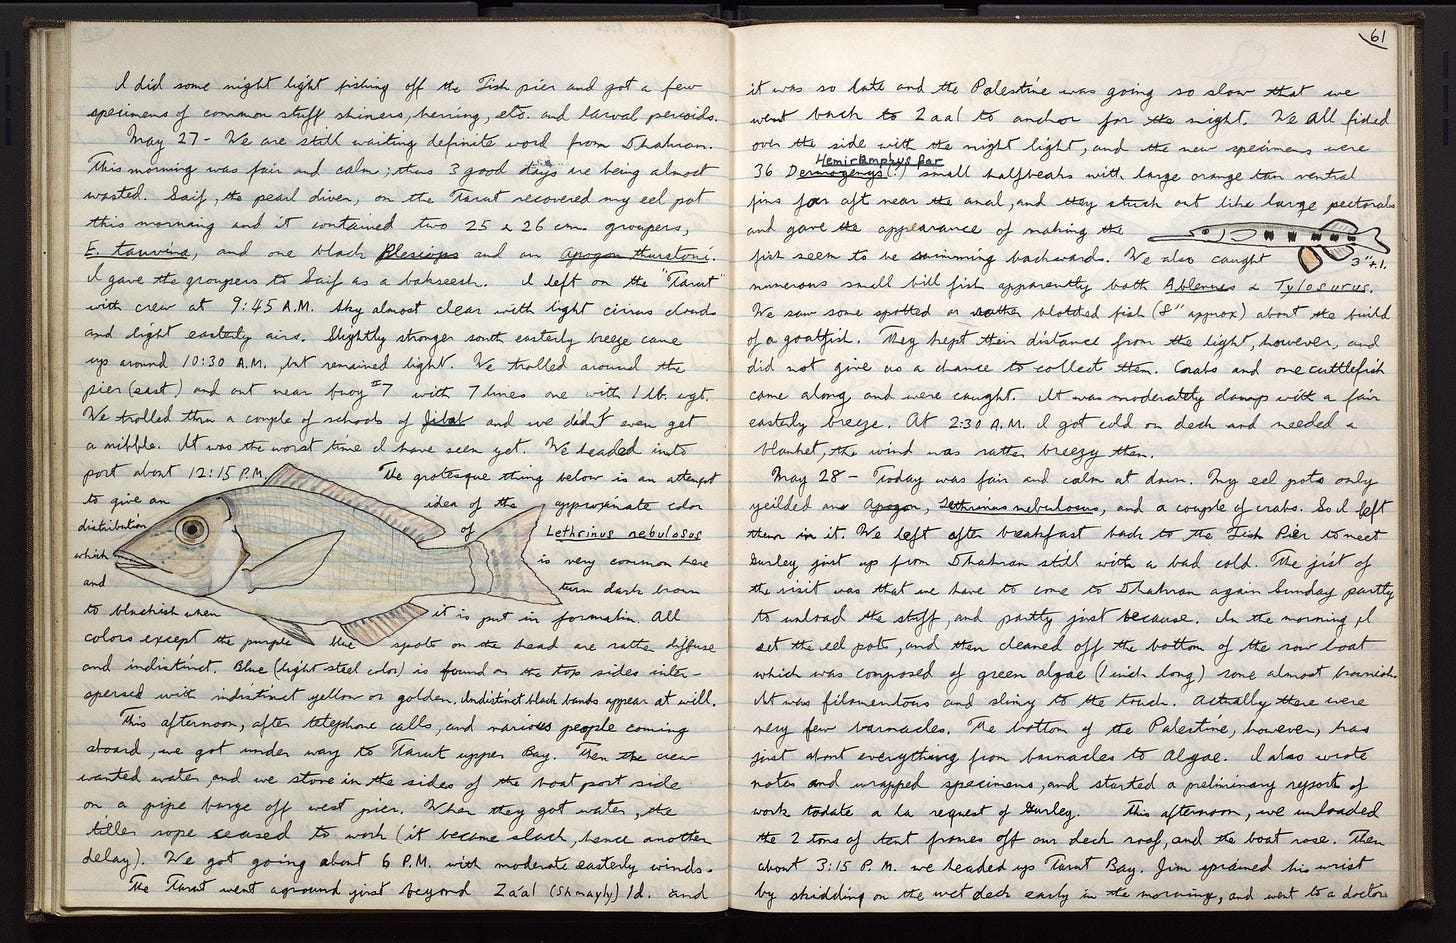 I did some night light fishing off the Fish pier and got a few
specimens of common stuff shiners, herring, etc. and larval percoids.
May 27 - We are still waiting definite word from Dhahran.
This morning was fair and calm; thus 3 good days are being almost
wasted. Saif, the pearl diver, on the Tarut recovered my eel pot
this morning and it contained two 25 & 26 cm. groupers,
E. tauvina, and one black Plesiops and an Apogon thurstoni.
I gave the groupers to Saif as a baksheesh. I left on the "Tarut"
with crew at 9:45 A.M. Sky almost clear with light cirrus clouds
and light easterly airs. Slightly stronger south easterly breeze came
up around 10:30 A.M., but remained light. We trolled around the
pier (east) and out near buoy #7 with 7 lines one with 1 lb. wgt.
We trolled thru a couple of schools of and we didn't even get
a nibble. It was the worst time I have seen yet. We headed into
port about 12:15 P.M. The grotesque thing below is an attempt
to give an idea of the approximate color
distribution of Lethrinus nebulosus
which is very common here
and turn dark brown
to blackish when it is put in formalin. All
colors except the purple blue spots on the head are rather diffuse
and indistinct. Blue (light steel color) is found on the top sides inter-
spersed with indistinct yellow or golden. Indistinct black bands appear at will.
This afternoon, after telephone calls, and various people coming
aboard, we got under way to Tarut upper Bay. Then the crew
wanted water, and we stove in the sides of the boat port side
on a pipe barge off west pier. When they got water, the
tiller rope ceased to work (it became slack, hence another
delay). We got going about 6 P.M. with moderate easterly winds.
The Tarut went aground just beyond Zaal (Shmayly) Id. and
61
it was so late and the Palestine was going so slow that we
went back to Zaal to anchor for the night. We all fished
over the side with the night light, and the new specimens were
Hemiramphus far
36 Dermogenys (?) small halfbeaks with large orange tan ventral
fins far aft near the anal, and they stuck out like large pectorals
and gave the appearance of making the
fish seem to be swimming backwards. We also caught 3" ±.
numerous small bill fish apparently both Ablennes & Tylosurus.
We saw some spotted or rather blotched fish (8" approx) about the build
of a goatfish. They kept their distance from the light, however, and
did not give us a chance to collect them. Crabs and one cuttlefish
came along and were caught. It was moderately damp with a fair
easterly breeze. At 2:30 A.M. I got cold on deck and needed a
blanket, the wind was rather breezy then.
May 28 - Today was fair and calm at dawn. My eel pots only
yeilded an Apogon, Lethrinus nebulosus, and a couple of crabs. So I left
them in it. We left after breakfast back to the Fish Pier to meet
Gurley just up from Dhahran still with a bad cold. The jist of
the visit was that we have to come to Dhahran again Sunday partly
to unload the stuff, and partly just because. In the morning, I
set the eel pots, and then cleaned off the bottom of the row boat
which was composed of green algae (1 inch long) some almost brownish.
It was filamentous and slimy to the touch. Actually there were
very few barnacles. The bottom of the Palestine, however, has
just about everything from barnacles to Algae. I also wrote
notes and wrapped specimens, and started a preliminary reports of
work todate a la request of Gurley. This afternoon, we unloaded
the 2 tons of tent frames off our deck roof, and the boat rose. Then
about 3:15 P.M. we headed up Tarut Bay. Jim sprained his wrist
by skidding on the wet deck early in the morning, and went to a doctor